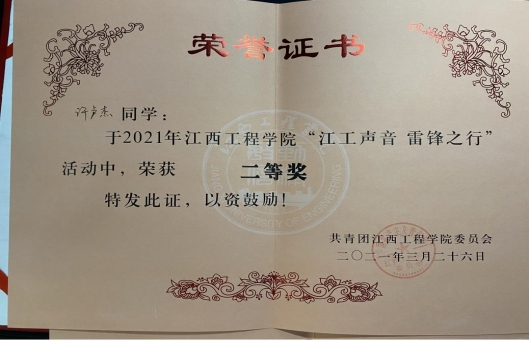 荣誉证书
许
杰同学：
于2021年江西工程学院“江工声音 雷锋之行”
活动中，荣获 二等奖
特发此证，以资鼓励！
共青团江西工程学院委员会
二〇二一年三月二十六日